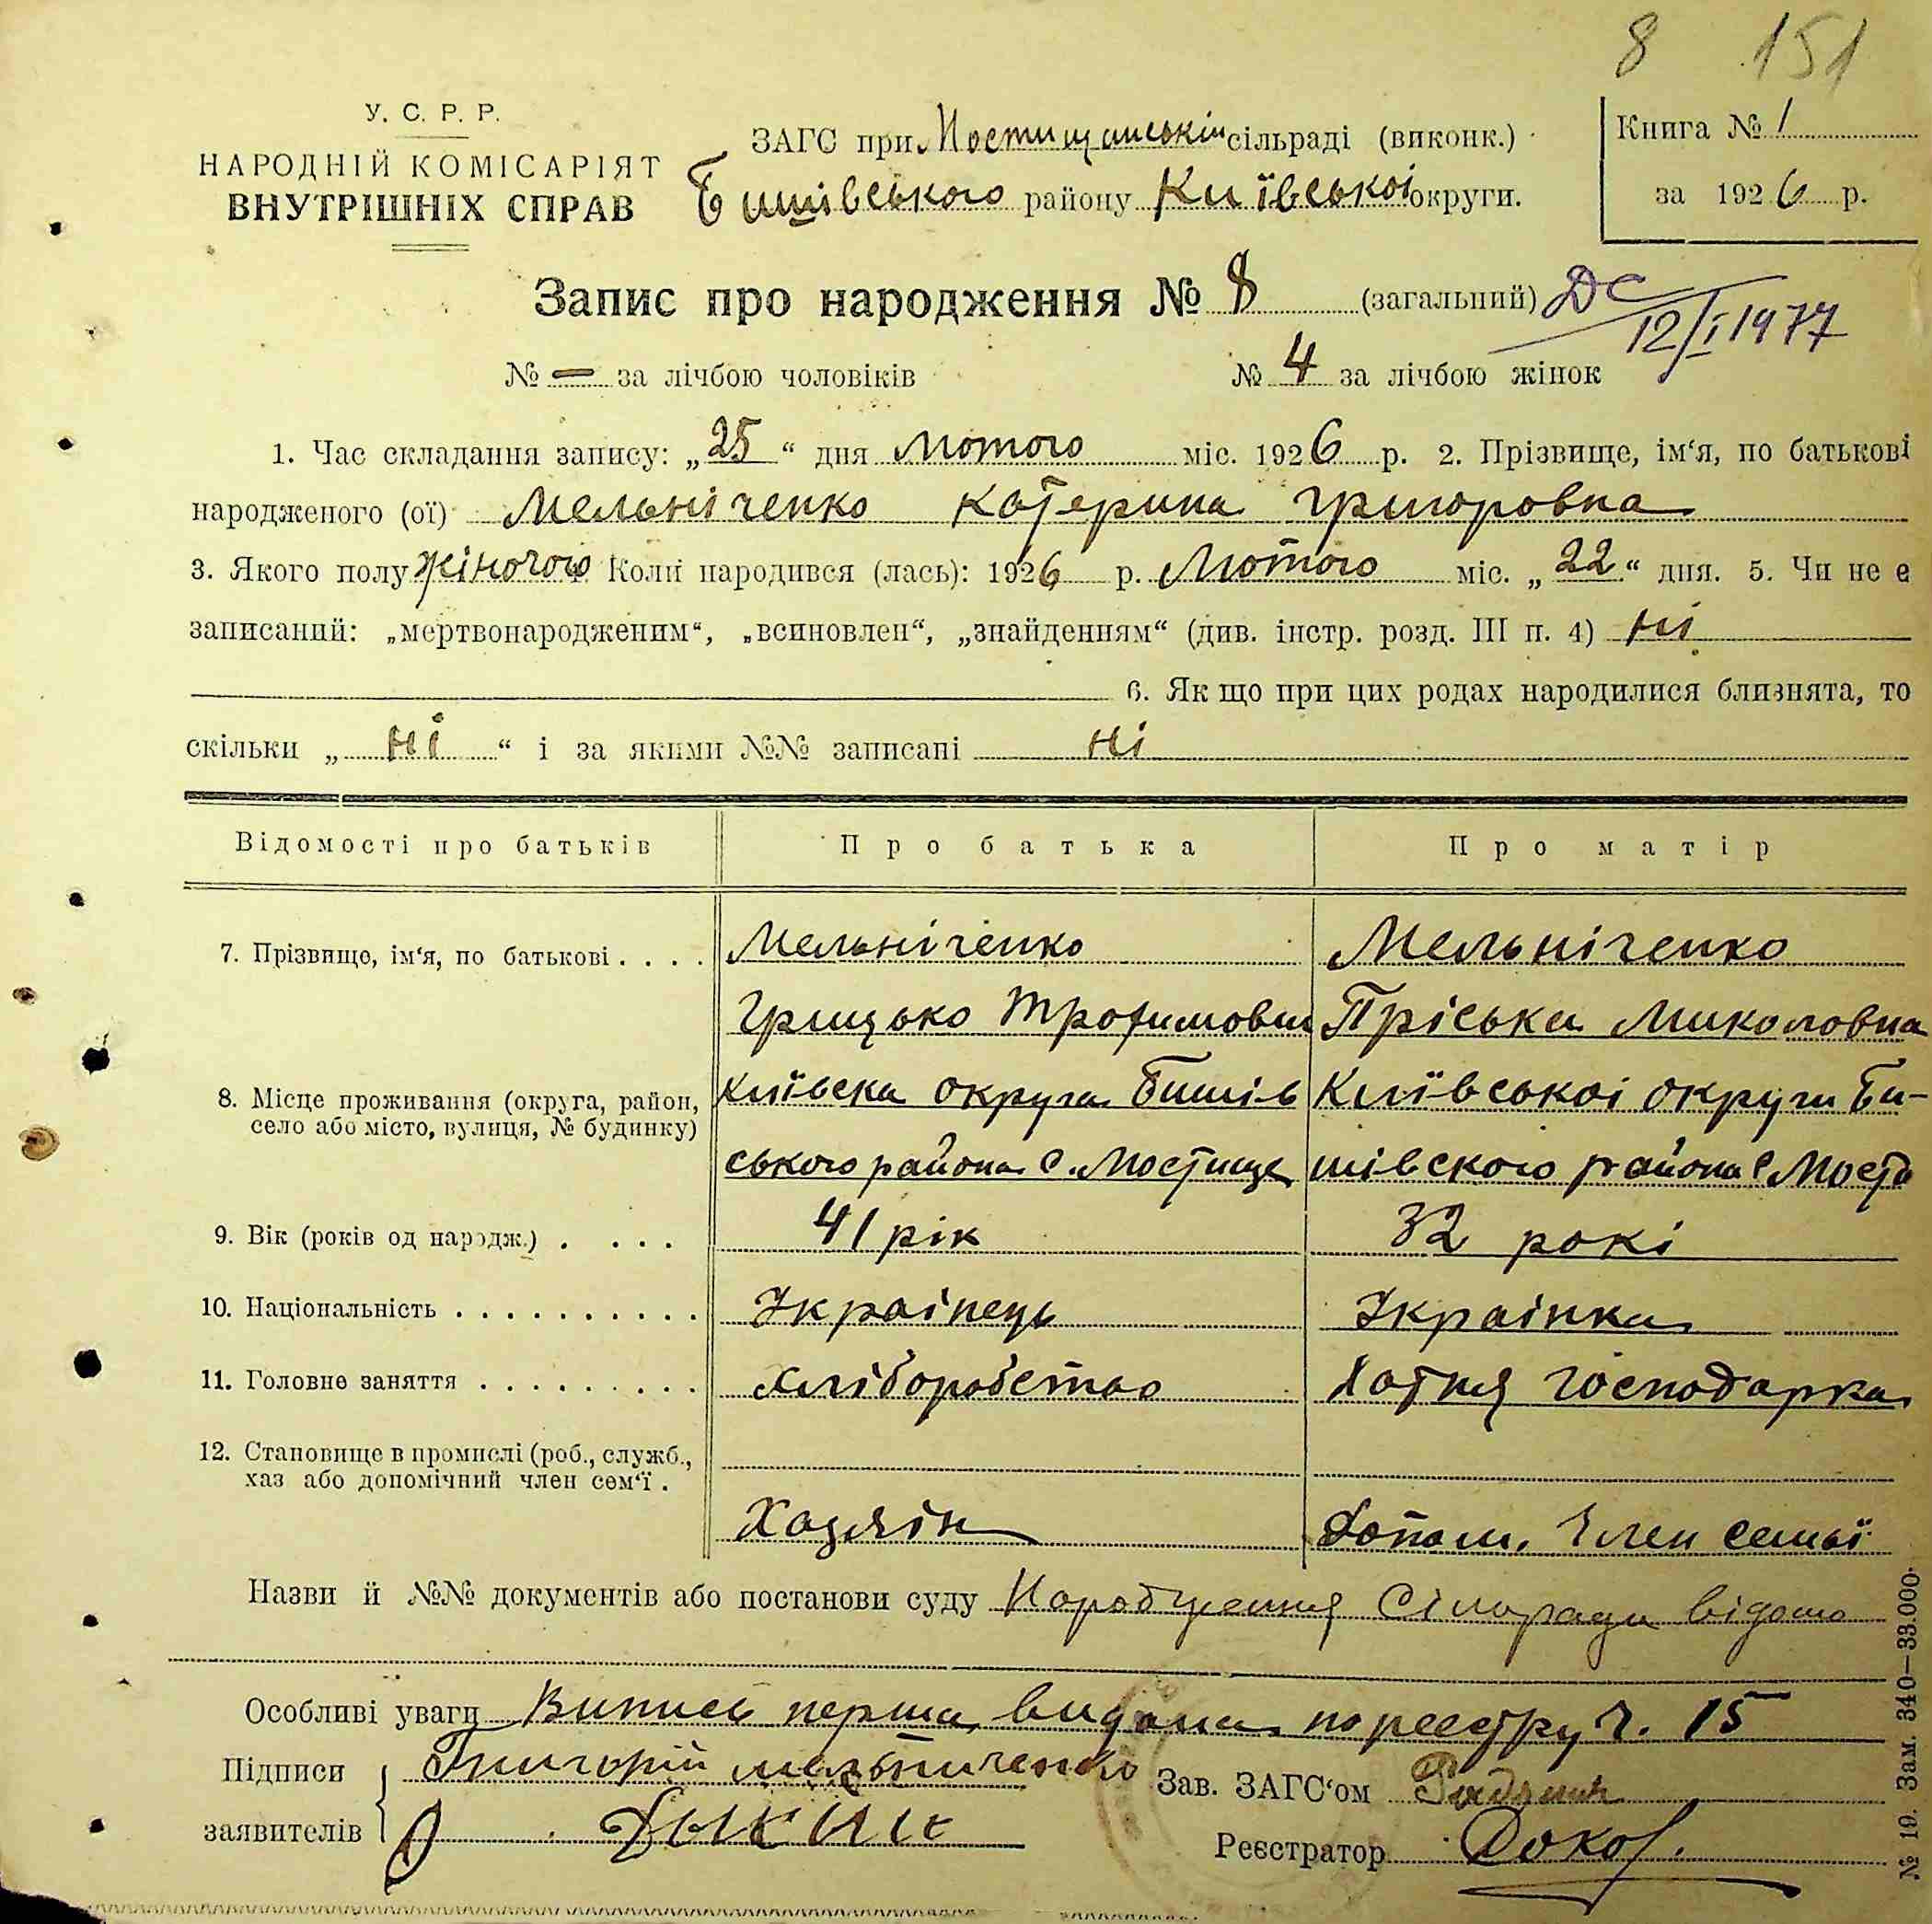 8 151
У. С. Р. Р.
НАРОДНІЙ КОМІСАРІЯТ
ВНУТРІШНІХ СПРАВ
ЗАГС при Мостищанській сільраді (виконк.)
Бишівського району Київської округи.
Книга № 1
за 1926 р.
Запис про народження № 8 (загальний)
ДС 12/I 1977
№ — за лічбою чоловіків № 4 за лічбою жінок
1. Час складання запису: „25“ дня Лютого міс. 1926 р. 2. Прізвище, ім‘я, по батькові
народженого (ої) Мельніченко Катерина Григоровна
3. Якого полу жіночого Коли народився (лась): 1926 р. Лютого міс. „22“ дня. 5. Чи не е
записаний: „мертвонародженим“, „всиновлен“, „знайденням“ (див. інстр. розд. III п. 4) ні
6. Як що при цих родах народилися близнята, то
скільки „ ні “ і за якими №№ записані ні
Відомості про батьків Про батька Про матір
7. Прізвище, ім‘я, по батькові . . . . Мельніченко Мельніченко
Грицько Трофимович Пріська Миколовна
8. Місце проживання (округа, район, Київска округа Бишів Київськоі округи Би-
село або місто, вулиця, № будинку) ського района с. Мостище шівского района с Мости
9. Вік (років од народж.) . . . . 41 рік 32 рокі
10. Національність . . . . . . . . . . Украінець Украінка
11. Головне заняття . . . . . . . . . хліборобство Хатня господарка
12. Становище в промислі (роб., служб.,
хаз або допомічний член сем‘ї .
Хазяін Допом. Член семьї
Назви й №№ документів або постанови суду Сільради відомо
Особливі уваги Випись перша видана по реестру ч. 15
Підписи Григорій мельниченко Зав. ЗАГС‘ом
заявителів Реєстратор
№ 19. Зам. 340—33.000.